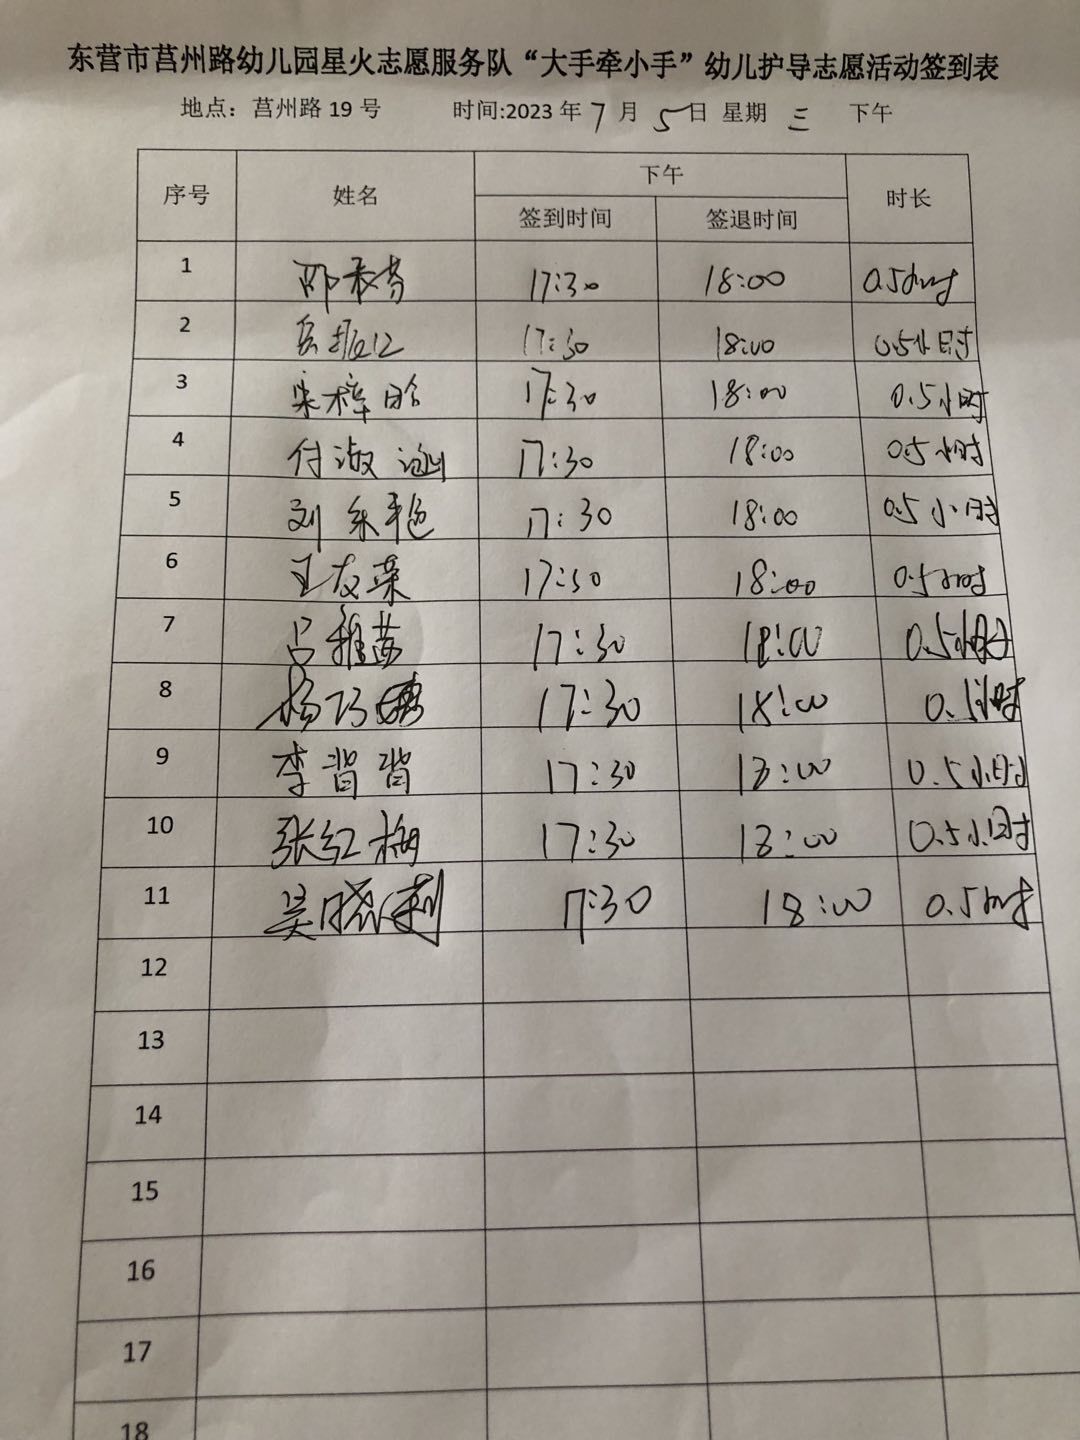 东营市莒州路幼儿园星火志愿服务队“大手牵小手”幼儿护导志愿活动签到表
地点：莒州路 19 号 时间:2023 年 7 月 5 日 星期 三 下午
序号 姓名 下午 时长
签到时间 签退时间
1 17:30 18:00 0.5小时
2 17:30 18:00 0.5小时
3 宋梓晗 17:30 18:00 0.5小时
4 付淑 17:30 18:00 0.5小时
5 刘 17:30 18:00 0.5小时
6 王友菜 17:30 18:00 0.5小时
7 吕雅茹 17:30 18:00 0.5小时
8 杨巧 17:30 18:00 0.5小时
9 李 17:30 18:00 0.5小时
10 张红梅 17:30 18:00 0.5小时
11 吴晓莉 17:30 18:00 0.5小时
12
13
14
15
16
17
18